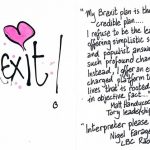 exit!
"My Brexit plan is the
credible plan....
I refuse to be the lea
offering simplistic s
and populist answe
such profound chan
Instead, I offer an e
charged platform t
lives 'that is rooted
in objective fact..."
Matt Hancock
Tory leadership
"Interpreter please
Nigel Farage
LBC Ra